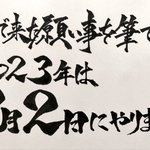 で来 願い事を筆で
023年は
月2日にやりま